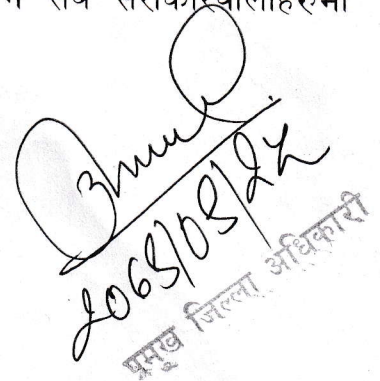 सबै सरोकारवालाहरुमा
२०६९/०९/२५
प्रमुख जिल्ला अधिकारी